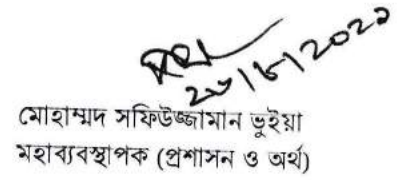 মোহাম্মদ সফিউজ্জামান ভুইয়া
মহাব্যবস্থাপক (প্রশাসন ও অর্থ)